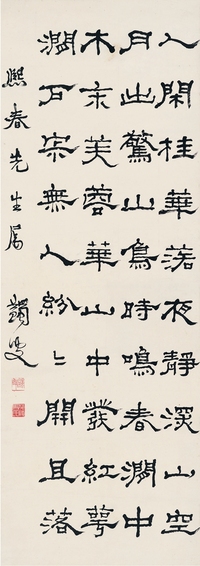 人閑桂華落夜靜深山空
月出驚山鳥時鳴春澗中
木末芙蓉華山中發紅萼
澗戶宗無人紛〻開且落
熙春先生屬 蠲叟